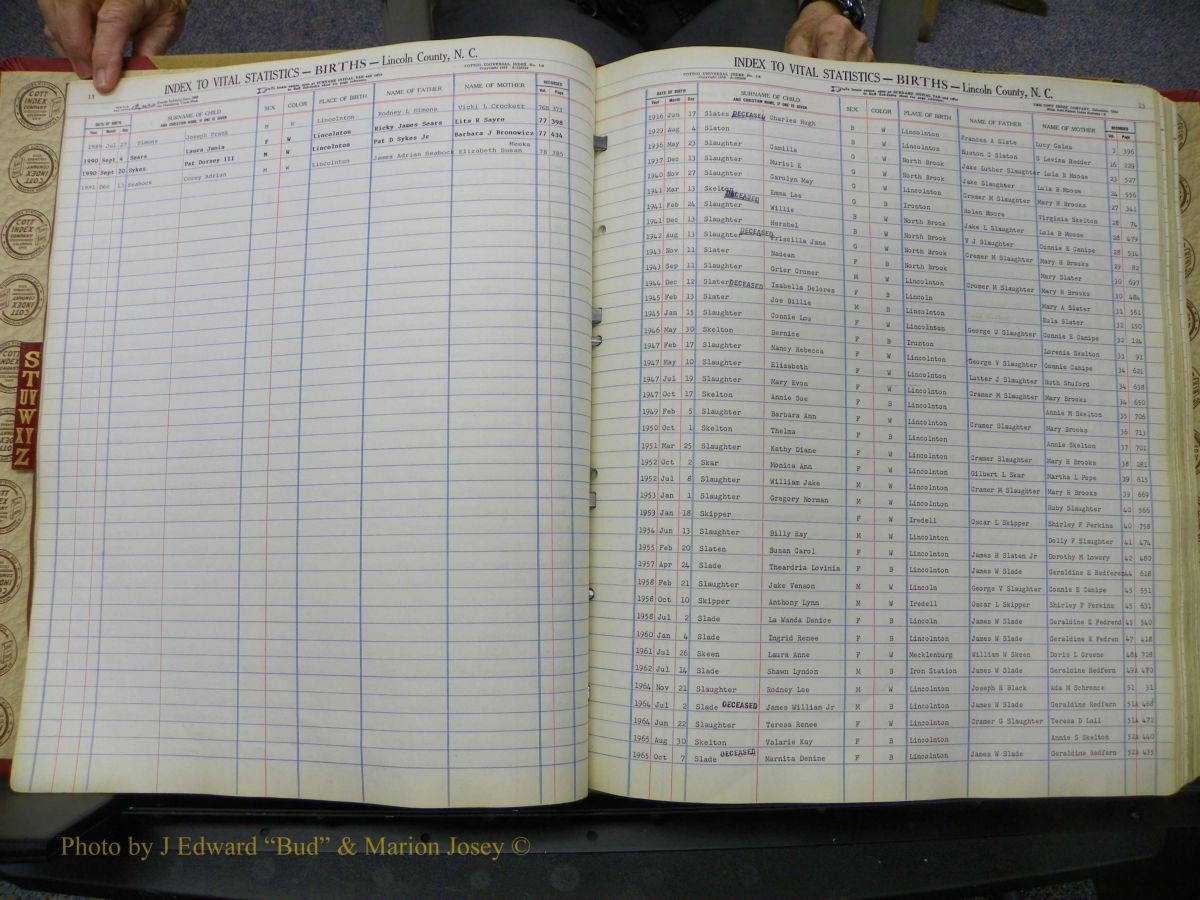 INDEX TO VITAL STATISTICS — BIRTHS — Lincoln County, N. C.
COTTCO UNIVERSAL INDEX No. 1A
11
DATE OF BIRTH
Year Month Day
SURNAME OF CHILD
AND CHRISTIAN NAME, IF ONE IS GIVEN
SEX COLOR PLACE OF BIRTH NAME OF FATHER NAME OF MOTHER RECORDED
Vol. Page
1989 Jul 25 Simons Joseph Frank M W Lincolnton Rodney L Simons Vicki L Crockett 76B 373
1990 Sept 4 Sears Laura Jania F W Lincolnton Ricky James Sears Lita R Sayre 77 398
1990 Sept 20 Sykes Pat Dorsey III M W Lincolnton Pat D Sykes Jr Barbara J Bronowicz 77 434
Meeks
1991 Dec 13 Seabock Corey Adrian M W Lincolnton James Adrian Seabock Elizabeth Susan 78 385
COTT INDEX COMPANY
S
T
U
V
W
X
Y
Z
INDEX TO VITAL STATISTICS — BIRTHS — Lincoln County, N. C.
COTTCO UNIVERSAL INDEX No. 1A
23
DATE OF BIRTH
Year Month Day
SURNAME OF CHILD
AND CHRISTIAN NAME, IF ONE IS GIVEN
SEX COLOR PLACE OF BIRTH NAME OF FATHER NAME OF MOTHER RECORDED
Vol. Page
1916 Jun 17 Slates DECEASED Charles Hugh B W Lincolnton Frances A Slate Lucy Gales 3 396
1929 Aug 4 Slaton Camilla G W Lincolnton Huston C Slaton S Levina Hedder 16 229
1936 May 23 Slaughter Muriel E G W North Brook Jake Luther Slaughter Lula B Moose 23 527
1937 Dec 13 Slaughter Carolyn May G W North Brook Jake Slaughter Lula B Moose 24 556
1940 Nov 27 Slaughter Emma Lee G W Lincolnton Cromer M Slaughter Mary H Brooks 27 341
1941 Mar 13 Skelton DECEASED Willie G B Ironton Rolen Moore Virginia Skelton 28 74
1941 Feb 24 Slaughter Hershel B W North Brook Jake L Slaughter Lula B Moose 28 479
1941 Dec 13 Slaughter DECEASED Priscilla Jane B W North Brook V J Slaughter Connie E Canipe 28 534
1942 Aug 13 Slaughter Nadean G W North Brook Cromer M Slaughter Mary H Brooks 29 82
1943 Nov 11 Slater Grier Cromer F B North Brook Mary Slater 30 697
1943 Sep 11 Slaughter Isabella Delores M W Lincolnton Cromer M Slaughter Mary H Brooks 30 484
1944 Dec 12 Slater DECEASED Joe Billie F B Lincoln Mary A Slater 31 561
1945 Feb 13 Slater Connie Lou M B Lincolnton Eula Slater 32 150
1945 Jan 15 Slaughter Bernice F W Lincolnton George V Slaughter Connie E Canipe 32 124
1946 May 30 Skelton Nancy Rebecca F B Ironton Lorenia Skelton 33 91
1947 Feb 17 Slaughter Elizabeth F W Lincolnton George V Slaughter Connie Canipe 34 621
1947 May 10 Slaughter Mary Evon F W Lincolnton Lutter J Slaughter Ruth Shuford 34 638
1947 Jul 19 Slaughter Annie Sue F W Lincolnton Cromer M Slaughter Mary Brooks 34 650
1947 Oct 17 Skelton Barbara Ann F B Lincolnton Annie M Skelton 35 706
1949 Feb 5 Slaughter Thelma F W Lincolnton Cromer Slaughter Mary Brooks 36 713
1950 Oct 1 Skelton Kathy Diane F B Lincolnton Annie Skelton 37 701
1951 Mar 25 Slaughter Monica Ann F W Lincolnton Cramer Slaughter Mary H Brooks 38 281
1952 Oct 2 Skar William Jake F W Lincolnton Gilbert L Skar Martha L Pope 39 615
1952 Jul 8 Slaughter Gregory Norman M W Lincolnton Cramer M Slaughter Mary H Brooks 39 669
1953 Jan 1 Slaughter M W Lincolnton Ruby Slaughter 40 566
1953 Jan 18 Skipper F W Iredell Oscar L Skipper Shirley F Perkins 40 758
1954 Jun 13 Slaughter Billy Ray M W Lincolnton Dolly F Slaughter 41 474
1955 Feb 20 Slaten Susan Carol F W Lincolnton James H Slaten Jr Dorothy M Lowery 42 480
1957 Apr 24 Slade Theardria Lovinia F B Lincolnton James W Slade Geraldine E Redferen 44 618
1958 Feb 21 Slaughter Jake Venson M W Lincoln George V Slaughter Connie E Canipe 45 551
1958 Oct 10 Skipper Anthony Lynn M W Iredell Oscar L Skipper Shirley F Perkins 45 631
1958 Jul 2 Slade La Wanda Denice F B Lincolnton James W Slade Geraldine E Fedrend 45 540
1960 Jan 4 Slade Ingrid Renee F B Lincolnton James W Slade Geraldine E Fedren 47 418
1961 Jul 26 Skeen Laura Anne F W Mecklenburg William W Skeen Doris L Greene 48A 728
1962 Jul 14 Slade Shawn Lyndon M B Iron Station James W Slade Geraldine Redfern 49A 470
1964 Nov 21 Slaughter Rodney Lee M W Lincolnton Joseph R Black Ada M Schronce 51 31
1964 Jul 2 Slade DECEASED James William Jr M B Lincolnton James W Slade Geraldine Redfern 51A 468
1964 Jun 22 Slaughter Teresa Renee F W Lincolnton Cramer G Slaughter Teresa D Lail 51A 472
1965 Aug 30 Skelton Valarie Kay F B Lincolnton Annie S Skelton 52A 440
1965 Oct 7 Slade DECEASED Marnita Denine F B Lincolnton James W Slade Geraldine Redfern 52A 435
Photo by J Edward “Bud” & Marion Josey ©